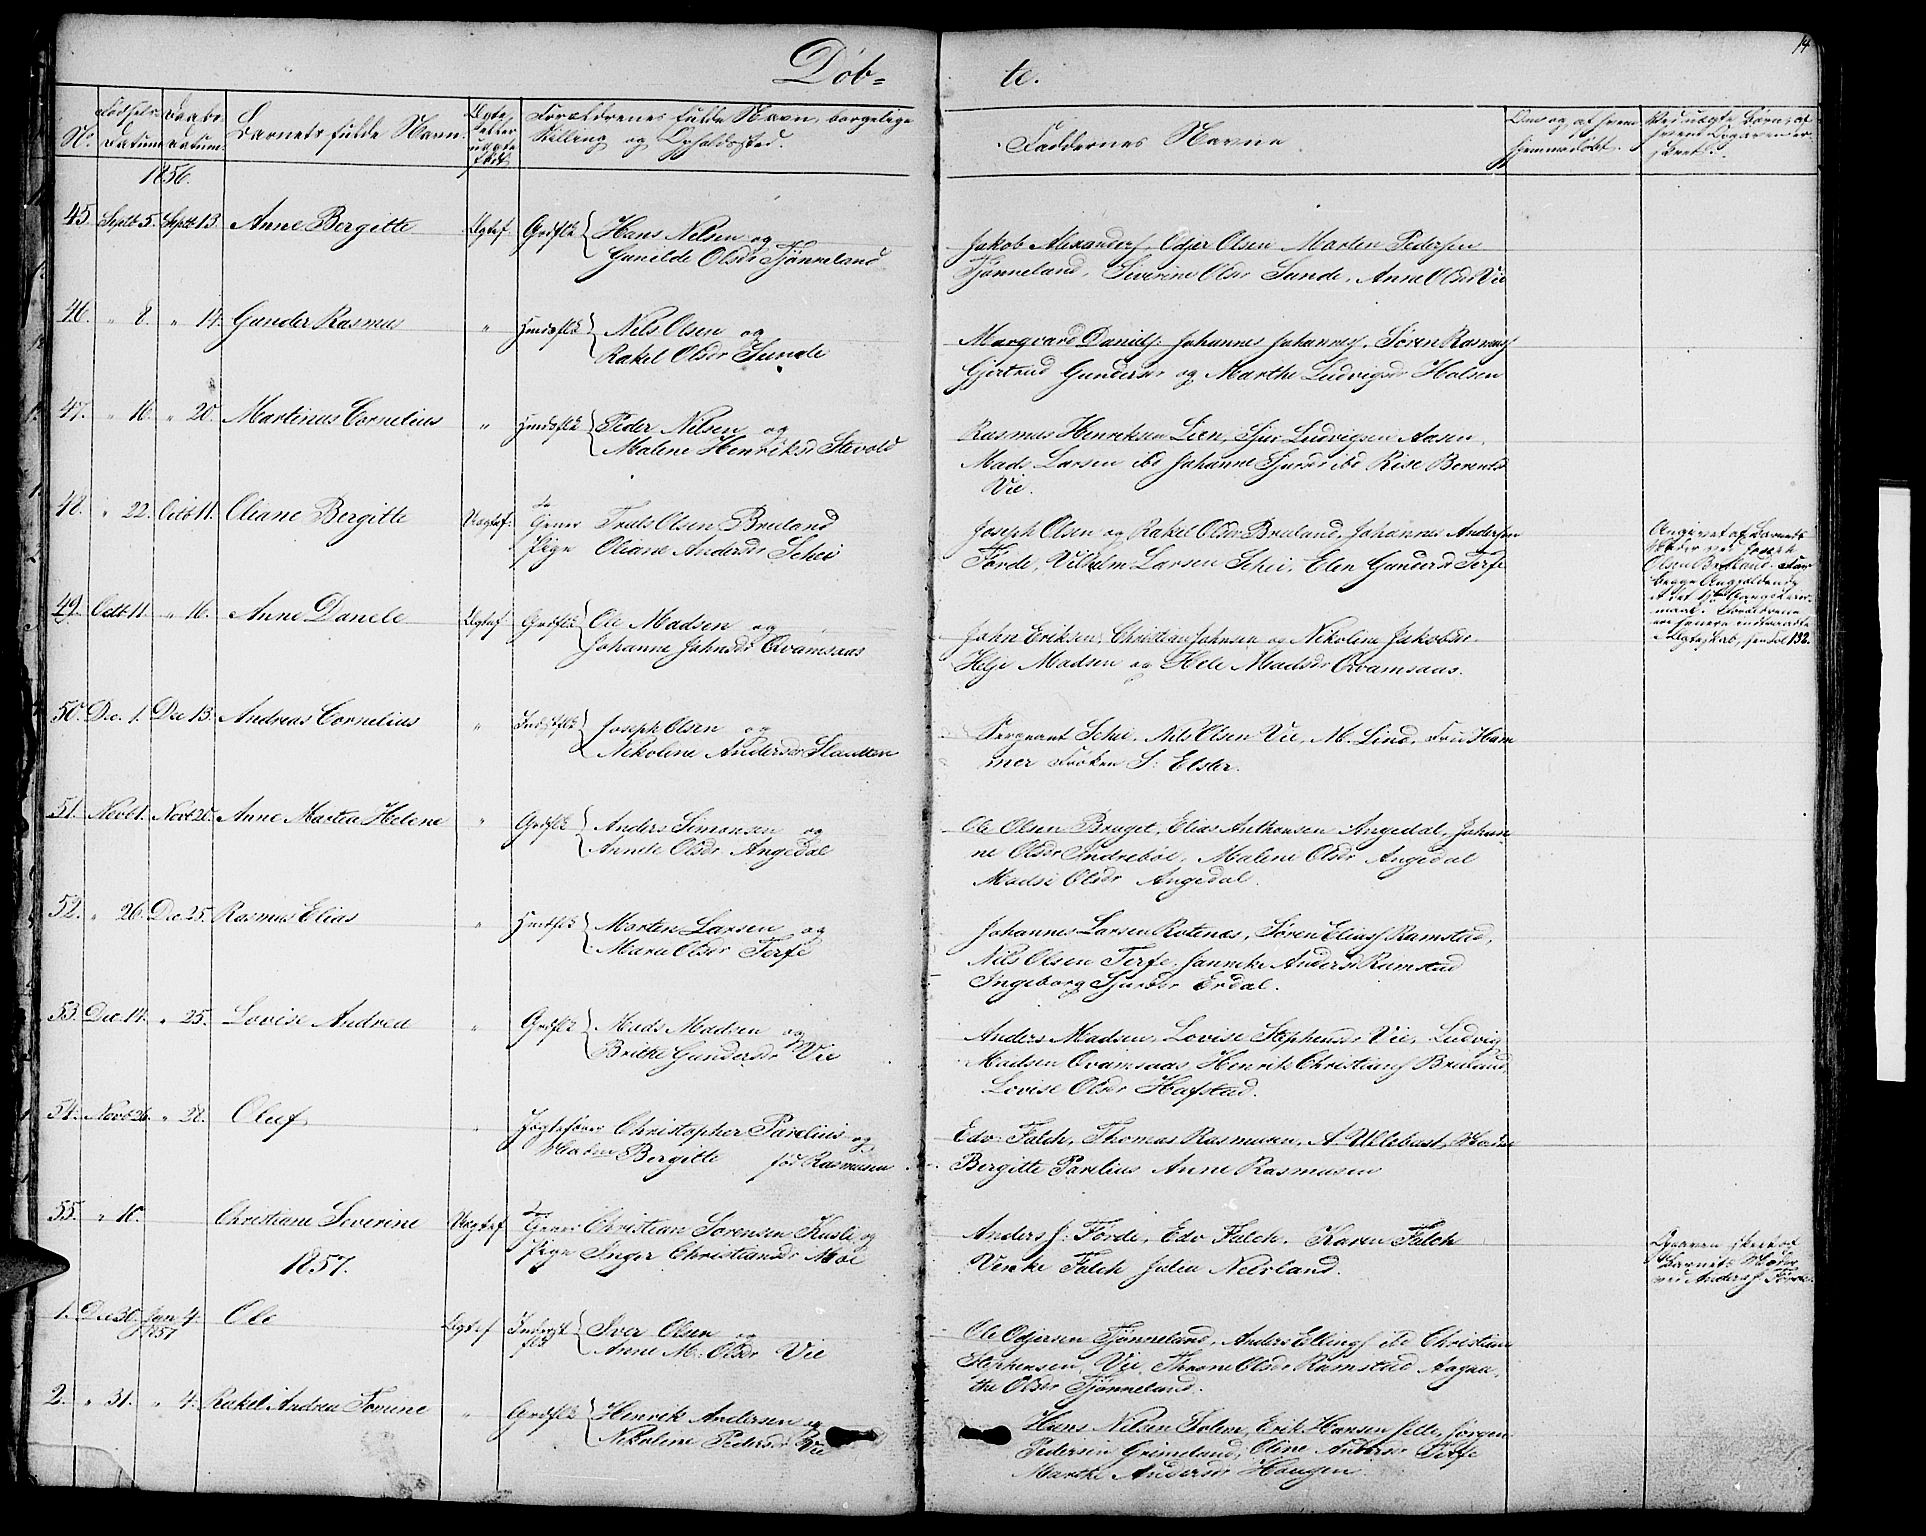 14
Døb= te.
No. Fødsels- Datum Daabs- Datum. Barnets fulde Navn. Ægte eller uægte født Forældrenes fulde Navn, borgelige
Stilling og Opholdssted. Faddernes Navne
1856.
45. Septb 5. Septb 13 Anne Bergitte Ægtef. Grdflk Hans Nilsen og
Gunilde Olsdr Tjønneland
Jakob Alexanders, Odjer Olsen Marten Pedersen
Tjønneland, Siverine Olsdr Sunde, Anne Olsdr Vie
46. " 8. " 14. Gunder Rasmus " Huusflk Nils Olsen og
Rakel Olsdr Sunde
Margvard Daniels: Johannes Johanness, Søren Rasmuss
Gjertrud Gundersdr og Marthe Ludvigsdr Halsen
47. " 16. " 20. Martinus Cornelius " Huusflk Peder Nilsen og
Malene Henriksdr Stevold
Rasmus Henriksen Lien, Sjur Ludvigsen Aasen,
Mads Larsen ibd Johanne Sjursdr ibd Rise Berentsdr
Vie.
48. " 22. Octb 11. Oliane Bergitte Uægtef. Gener Truls Olsen Bruland
Pige Oliane Andersdr Schei
Joseph Olsen og Rakel Olsdr Bruland, Johannes Andersen
Førde, Vilhelm Larsen Schei, Elen Gundersdr Terfe
Angivet af Barnets
Moder ved Joseph
Olsen Bruland. For
begge Angjældende
er det 1ste Gangs Leier-
maal. Forældrene
er senere indtraadte
i Ægteskab,
49. Octb 11. " 16. Anne Danele Ægtef Grdflk Ole Madsen og
Johanne Johnsdr Qvamsaas
John Eriksen, Christian Johnsen og Nikoline Jakobsdr
Helje Madsen og Hele Madsdr Qvamsaas.
50. Dec. 1. Dec 13. Andreas Cornelius " Indstflk Joseph Olsen og
Nikoline Andersdr Slaatten
Sergeant Schei, Nils Olsen Vie, M. Lind, Fru Ham
mer Frøken S: Elster.
51. Novb 1. Novb 20. Anne Martea Helene " Grdflk Anders Simonsen og
Annele Olsdr Angedal
Ole Olsen Bruget, Elias Anthonsen Angedal, Johan-
ne Olsdr Indrebøe, Malene Olsdr Angedal
Madsi Olsdr Angedal.
52. " 26. Dec. 25. Rasmus Elias " Huusflk Morten Larsen og
Maria Olsdr Terfe
Johannes Larsen Rotenæs, Søren Eliass Ramstad,
Nils Olsen Terfe, Janneke Andersdr Ramstad
Ingeborg Sjursdr Erdal.
53. Dec. 14. " 25. Lovise Andrea " Grdflk Mads Madsen og
Brithe Gundersdr Vie
Anders Madsen, Lovise Stephensdr Vie, Ludvig
Madsen Qvamsaas Henrik Christians Bruland
Lovise Olsdr Hafstad.
54. Novb 26. " 28. Oluf " Jægtefører Christopher Parelius og
Bergitte fød Rasmusen
Edv: Falch, Thomas Rasmusen, A
Bergitte Parelius Anne Rasmusen
55. " 10. Christiane Severine Uægtef Gener Christian Sørensen Kusli og
Pige Inger Christiansdr Moe
Anders J: Førde, Edv Falch, Karen Falch
Venke Falch Julia Nelvland.
Opgaven skeet af
Barnets Moder
ved Anders J Førde
1857.
1. Dec 30 Jan 4. 1857 Ole Ægtef Inderst
flk Iver Olsen og
Anne M. Olsdr Vie
Ole Odjersen Tjønneland, Anders Ellings ibd Christian
Stephensen Vie, Throne Olsdr Ramstad Aagaa-
the Olsdr Tjønneland.
2. " 31. " 4. Rakel Andrea Tomine " Grdflk Henrik Andersen og
Nikoline Pedersdr Vie
Hans Nilsen Solem, Erik Hansen Jelle, Jørgen
Pedersen Grimeland, Oline Andersdr Terfe
Marthe Andersdr Haugen.